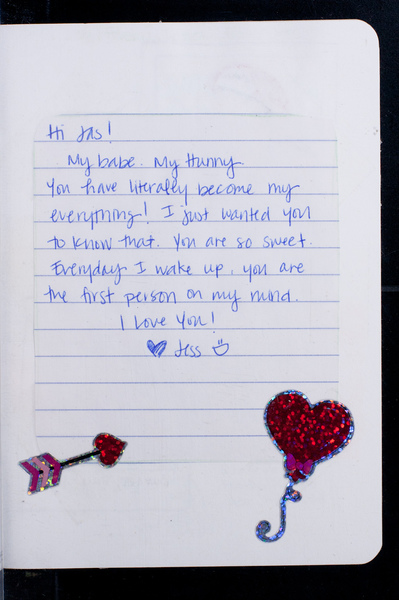 Hi Jas!
My babe. My Hunny.
You have literally become my
everything! I just wanted you
to know that. You are so sweet.
Everyday I wake up, you are
the first person on my mind.
I Love You!
♥ Jess